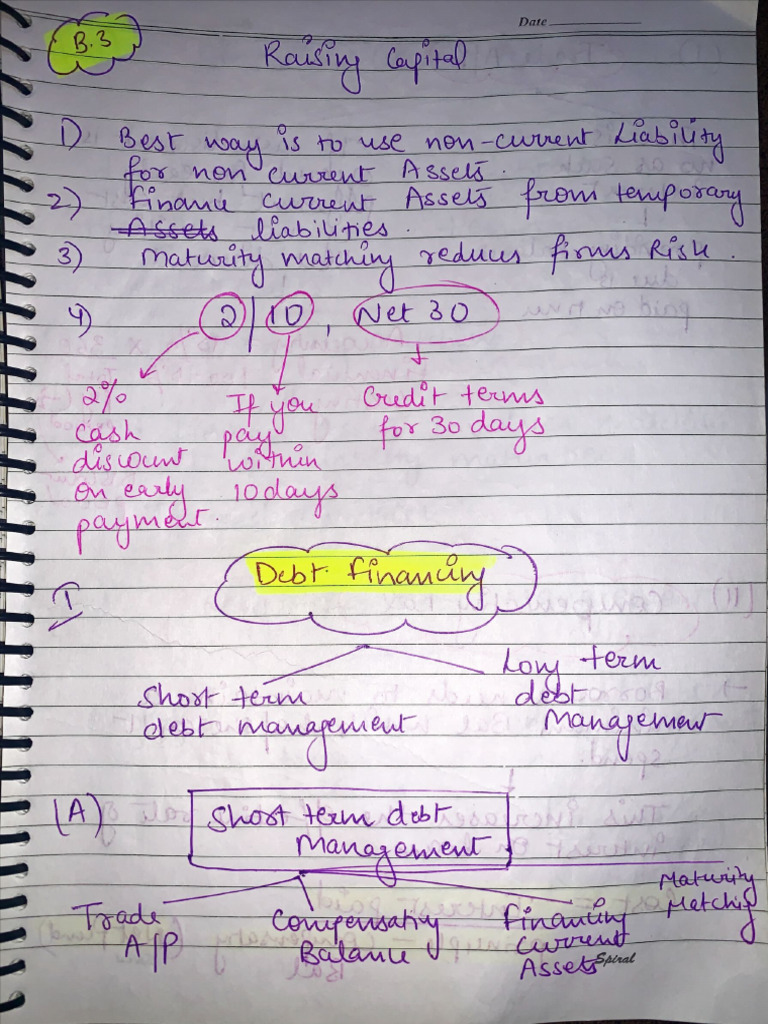 Date
B.3
Raising Capital
1) Best way is to use non-current Liability
for non current Assets.
2) Finance current Assets from temporary
Assets liabilities.
3) Maturity matching reduces firms Risk.
4) 2/10, Net 30
2% cash discount on early payment.
If you pay within 10 days
Credit terms for 30 days
I
Debt financing
Short term debt management
Long term debt Management
(A) Short term debt Management
Trade A/P
Compensatiy Balance
Financing Current Assets
Maturity Metchig
Spiral